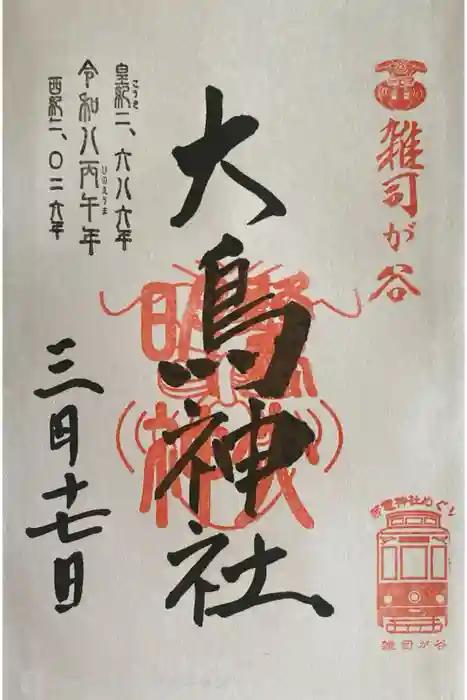 雑司が谷
大鳥神社
明神
皇紀二、六八六年
こうき
令和八丙午年
ひのえうま
西紀二、〇二六年
三月十七日
都電神社めぐり
雑司が谷